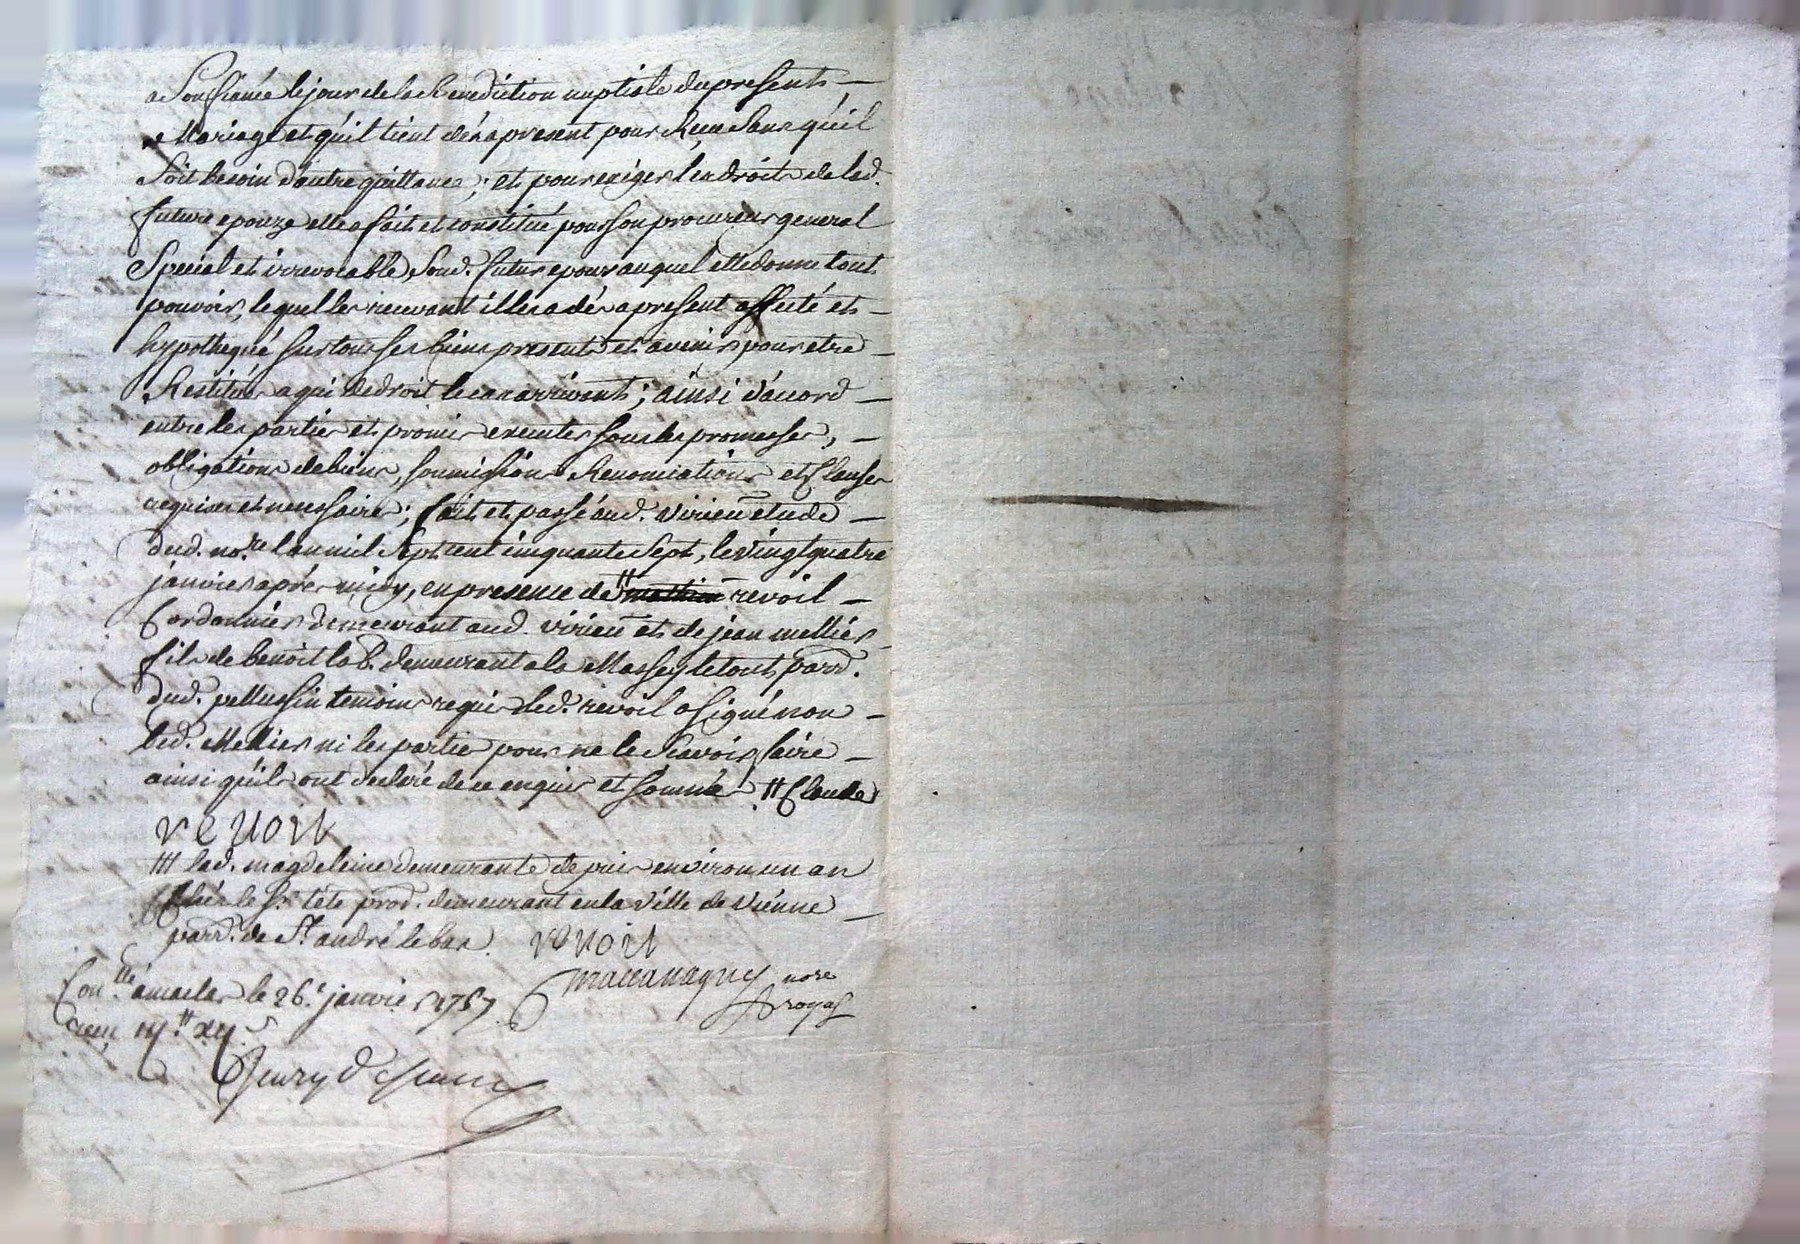 a Son fiancée le jour de la Benediction nuptiale du present —
Mariage et qu'il tient dés a present pour Reçu Sans qu'il
Soit besoin d'autre quittance; et pour exiger les droits de lad.
future epouze elle a fait et constitué pour son procureur general
Special et irrevocable, Soud. futur epoux auquel elle donne tout
pouvoir, lequel les recevant il les a dés a present affecté et —
hypothequé sur tous ses biens presents et avenir pour etre —
Restitués a qui de droit le cas arrivant; ainsi d'accord —
entre les parties et promis executer sous les promesses, —
obligations de biens, soumissions Renonciations et Clauses
requises et necessaire; fait et passé aud. virieu etude —
dud. no.re l'an mil Sept cent cinquante Sept, le vingt quatre
janvier aprés midy, en presence de # revoil —
Cordonnier demeurant aud. virieu et de jean mellier
fils de benoit lab. demeurant a la Massey le tout parr.
dud. pellussin temoins requis led. revoil a signé non —
led. Mellier ni les partie pour ne le Scavoir faire —
ainsi qu'ils ont declaré de ce enquis et sommé. # Claude
revoil
### lad. magdeleine demeurante depuis environ un an
chés le Sr. tête prod. demeurant en la ville de vienne —
parr. de St. andré le bas. revoil
nore
royal
Con.lle a maclas le 26.e janvier 1757